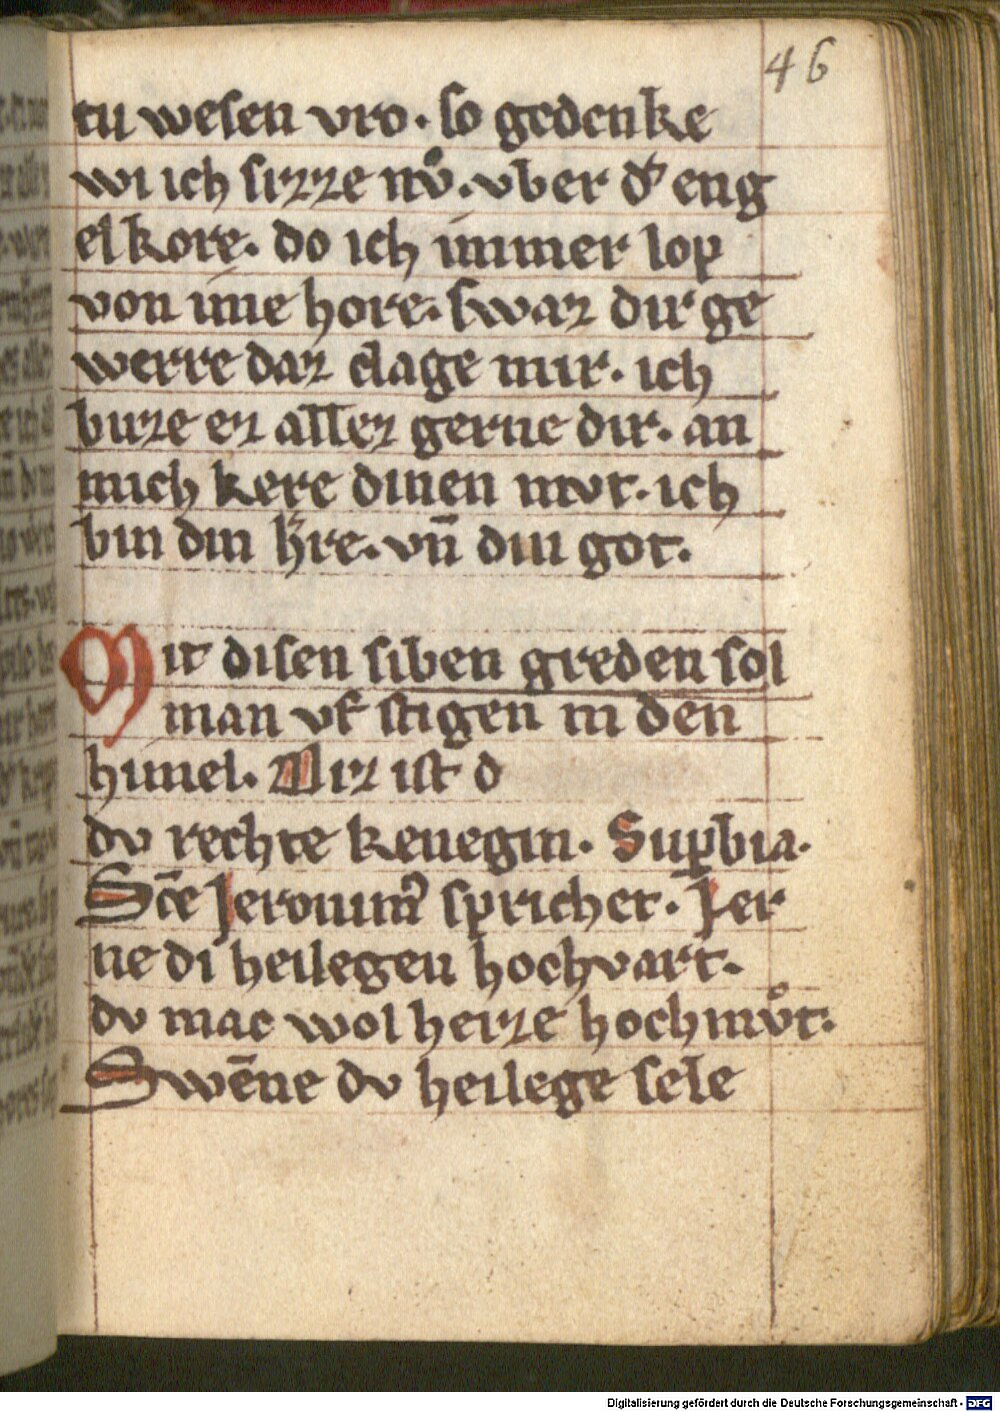 46
tu wesen vro. so gedenke
wi ich sizze nv̊. vber d᾿ eng
elkore. do ich immer lop
von ime hore. swaz dir ge
werre daz clage mir. ich
buze ez allez gerne dir. an
mich kere dinen mvt. ich
bin din h᾿re. vn̄ din got.
Mit disen siben greden sol
man vf stigen in den
himel. Diz ist d
dv rechte kenegin. Supbia.
Sc̄e Jeronim᾿ sprichet. Jer
ne di heilegen hochvart.
dv mac wol heize hochmv̊t.
Swēne dv heilege sele
Digitalisierung gefördert durch die Deutsche Forschungsgemeinschaft - DFG